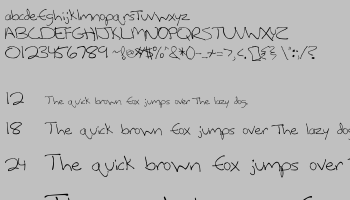 abcdefghijklmnopqrstuvwxyz
ABCDEFGHIJKLMNOPQRSTUVWXYZ
0123456789 ~!@#$%^&*()-_+=?,<.[]{} \":;/?
12 The quick brown fox jumps over the lazy dog.
18 The quick brown fox jumps over the lazy dog
24 The quick brown fox jumps over